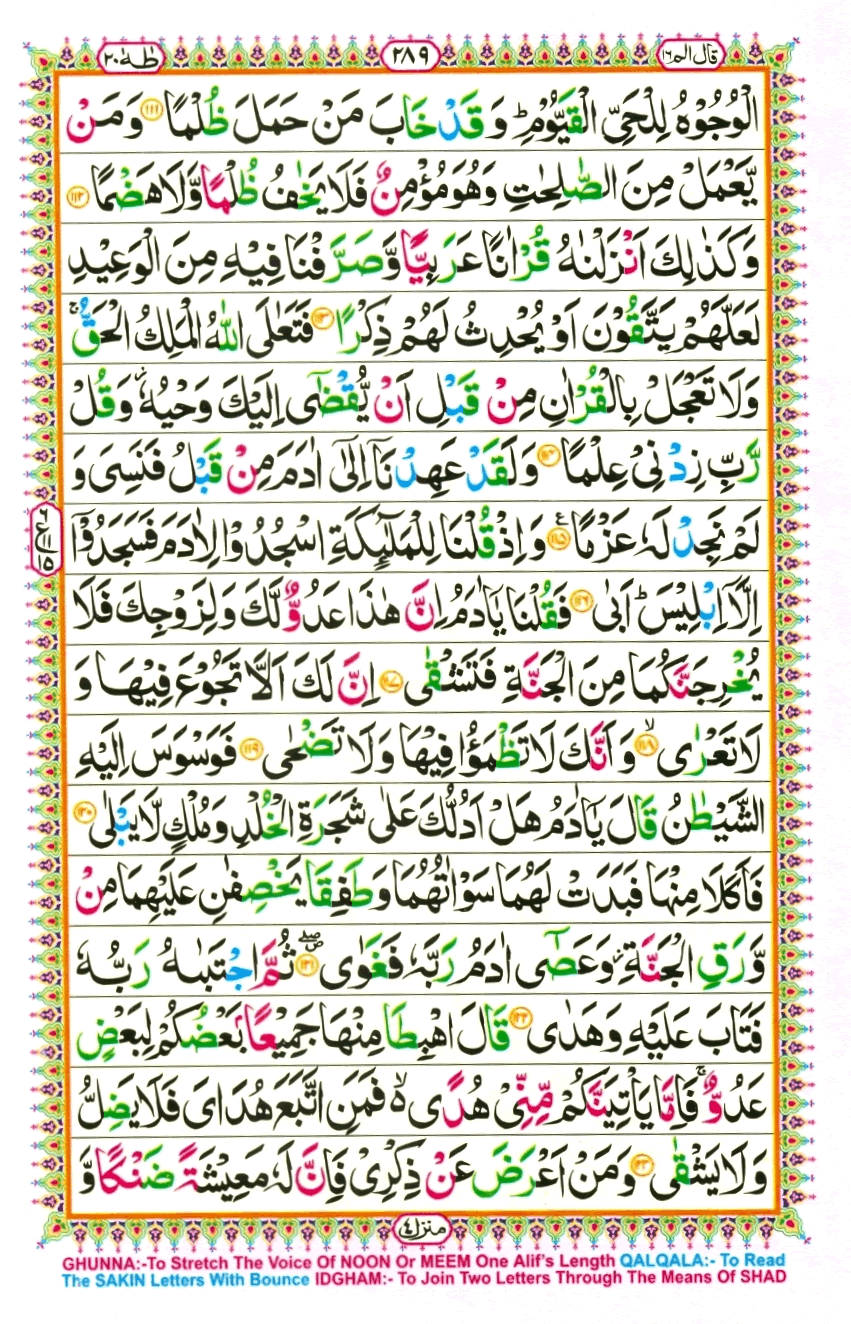 قال الم ۱۶ ۲۸۹ طٰهٰ ۲۰
الْوُجُوْهُ لِلْحَیِّ الْقَیُّوْمِ ؕ وَ قَدْ خَابَ مَنْ حَمَلَ ظُلْمًا ﴿۱۱۱﴾ وَ مَنْ
یَّعْمَلْ مِنَ الصّٰلِحٰتِ وَهُوَ مُؤْمِنٌ فَلَا یَخٰفُ ظُلْمًا وَّلَا هَضْمًا ﴿۱۱۲﴾
وَكَذٰلِكَ اَنْزَلْنٰهُ قُرْاٰنًا عَرَبِیًّا وَّصَرَّفْنَا فِیْهِ مِنَ الْوَعِیْدِ
لَعَلَّهُمْ یَتَّقُوْنَ اَوْ یُحْدِثُ لَهُمْ ذِكْرًا ﴿۱۱۳﴾ فَتَعٰلَی اللّٰهُ الْمَلِكُ الْحَقُّ ۚ
وَلَا تَعْجَلْ بِالْقُرْاٰنِ مِنْ قَبْلِ اَنْ یُّقْضٰۤی اِلَیْكَ وَحْیُهٗ ؗ وَقُلْ
رَّبِّ زِدْنِیْ عِلْمًا ﴿۱۱۴﴾ وَلَقَدْ عَهِدْنَاۤ اِلٰۤی اٰدَمَ مِنْ قَبْلُ فَنَسِیَ وَ
لَمْ نَجِدْ لَهٗ عَزْمًا ﴿۱۱۵﴾ ع وَ اِذْ قُلْنَا لِلْمَلٰٓىِٕكَةِ اسْجُدُوْا لِاٰدَمَ فَسَجَدُوْۤا
اِلَّاۤ اِبْلِیْسَ ؕ اَبٰی ﴿۱۱۶﴾ فَقُلْنَا یٰۤاٰدَمُ اِنَّ هٰذَا عَدُوٌّ لَّكَ وَلِزَوْجِكَ فَلَا
یُخْرِجَنَّكُمَا مِنَ الْجَنَّةِ فَتَشْقٰی ﴿۱۱۷﴾ اِنَّ لَكَ اَلَّا تَجُوْعَ فِیْهَا وَ
لَا تَعْرٰی ﴿۱۱۸﴾ ۙ وَ اَنَّكَ لَا تَظْمَؤُا فِیْهَا وَلَا تَضْحٰی ﴿۱۱۹﴾ فَوَسْوَسَ اِلَیْهِ
الشَّیْطٰنُ قَالَ یٰۤاٰدَمُ هَلْ اَدُلُّكَ عَلٰی شَجَرَةِ الْخُلْدِ وَمُلْكٍ لَّا یَبْلٰی ﴿۱۲۰﴾
فَاَكَلَا مِنْهَا فَبَدَتْ لَهُمَا سَوْاٰتُهُمَا وَ طَفِقَا یَخْصِفٰنِ عَلَیْهِمَا مِنْ
وَّرَقِ الْجَنَّةِ ؗ وَعَصٰۤی اٰدَمُ رَبَّهٗ فَغَوٰی ﴿۱۲۱﴾ ثُمَّ اجْتَبٰىهُ رَبُّهٗ
فَتَابَ عَلَیْهِ وَ هَدٰی ﴿۱۲۲﴾ قَالَ اهْبِطَا مِنْهَا جَمِیْعًۢا بَعْضُكُمْ لِبَعْضٍ
عَدُوٌّ ۚ فَاِمَّا یَاْتِیَنَّكُمْ مِّنِّیْ هُدًی ۙ۬ فَمَنِ اتَّبَعَ هُدَایَ فَلَا یَضِلُّ
وَلَا یَشْقٰی ﴿۱۲۳﴾ وَمَنْ اَعْرَضَ عَنْ ذِكْرِیْ فَاِنَّ لَهٗ مَعِیْشَةً ضَنْكًا وَّ
۶ ع ۱۱ ۱۵
منزل ۴
GHUNNA:-To Stretch The Voice Of NOON Or MEEM One Alif's Length QALQALA:- To Read
The SAKIN Letters With Bounce IDGHAM:- To Join Two Letters Through The Means Of SHAD